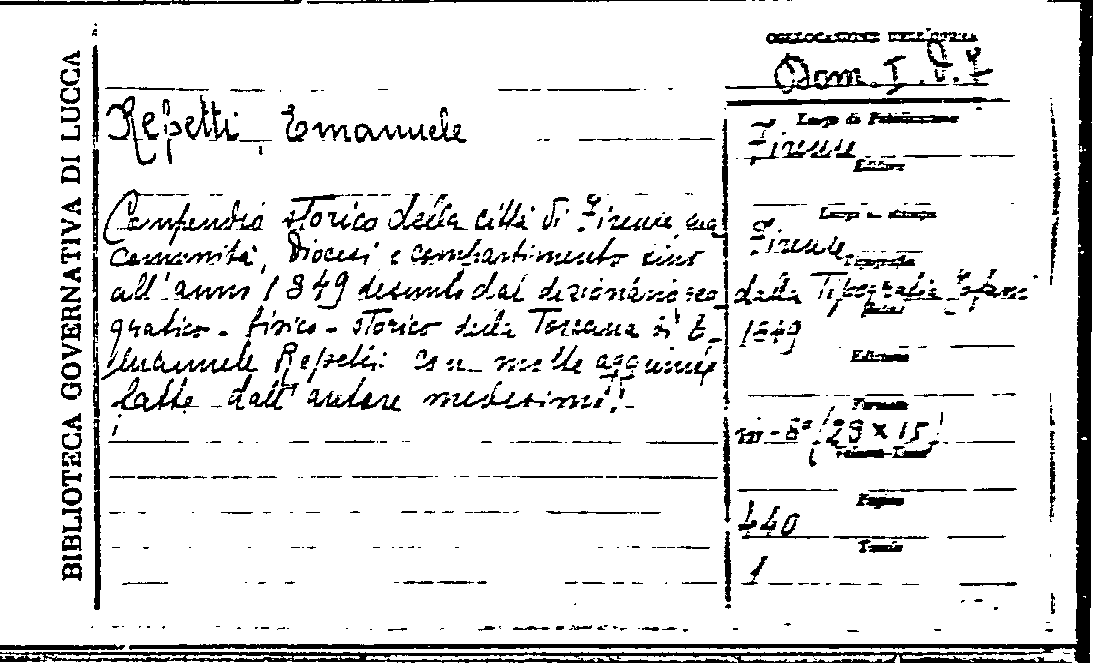 BIBLIOTECA GOVERNATIVA DI LUCCA
COLLOCAZIONE DELL'OPERA
Dom. I. V. 7
Repetti, Emanuele
Luogo di Pubblicazione
Firenze
Editore
Compendio storico della città di Firenze, sua
comunità, diocesi e compartimento sino
all'anno 1849 desunto dal dizionario geo
grafico - fisico - storico della Toscana di E_
manuele Repetti con molte aggiunte
fatte dall'autore medesimo.
Luogo di stampa
Firenze
Tipografia
dalla Tipografia Tofani
1849
Edizione
Formato
in-8° (23 x 15)
Pagine
440
Tomi
1